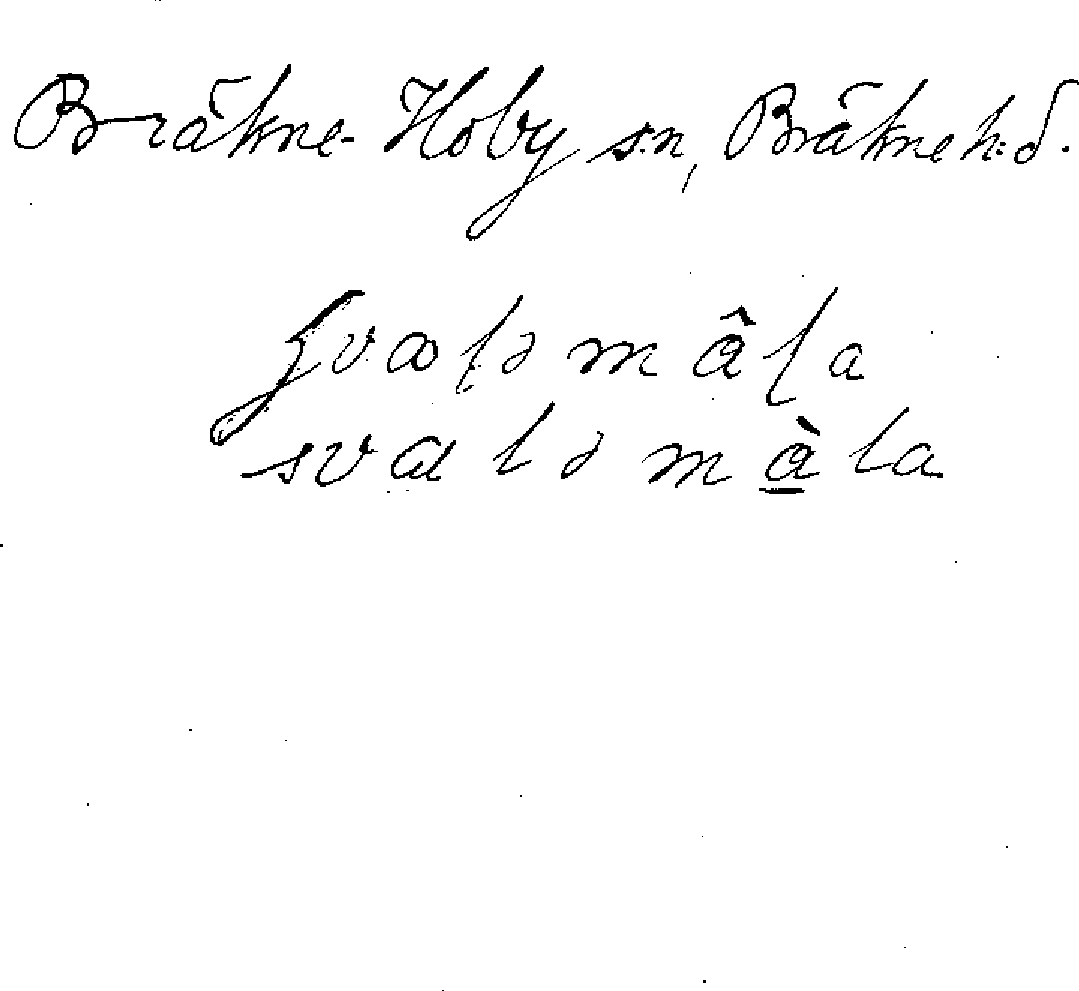 Bräkne-Hoby sn, Bräkne h:d.
svaləmâla
svaləmàla